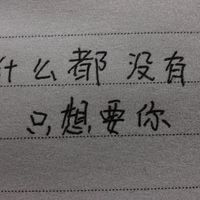 什么都没有
只想要你